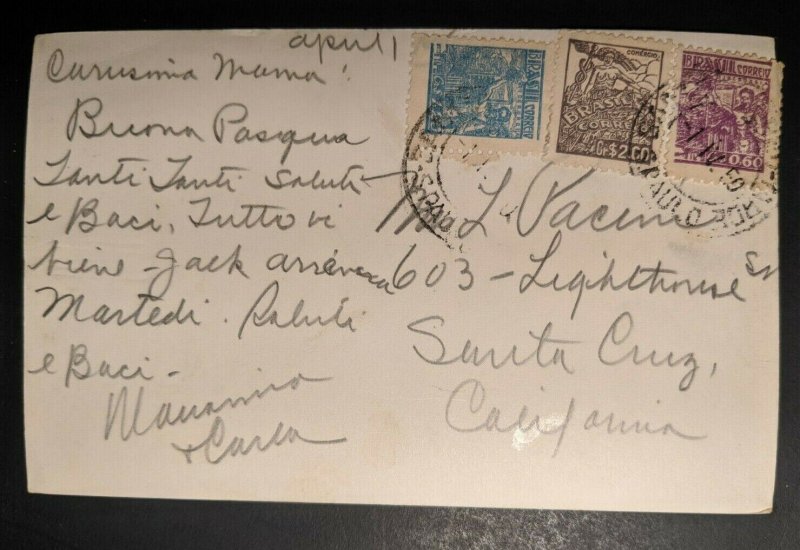 april 1
Carissima Mama!
Buona Pasqua
Tanti Tanti Saluti
e Baci. Tutto vi
bene - Jack arrivera
Martedi. Saluti
e Baci -
& Carla
L Pacini
603 - Lighthouse
Santa Cruz,
California
BRASIL CORREIO
COMÉRCIO
BRASIL
CORREIO
Cr$ 2,00
BRASIL CORREIO
0,60